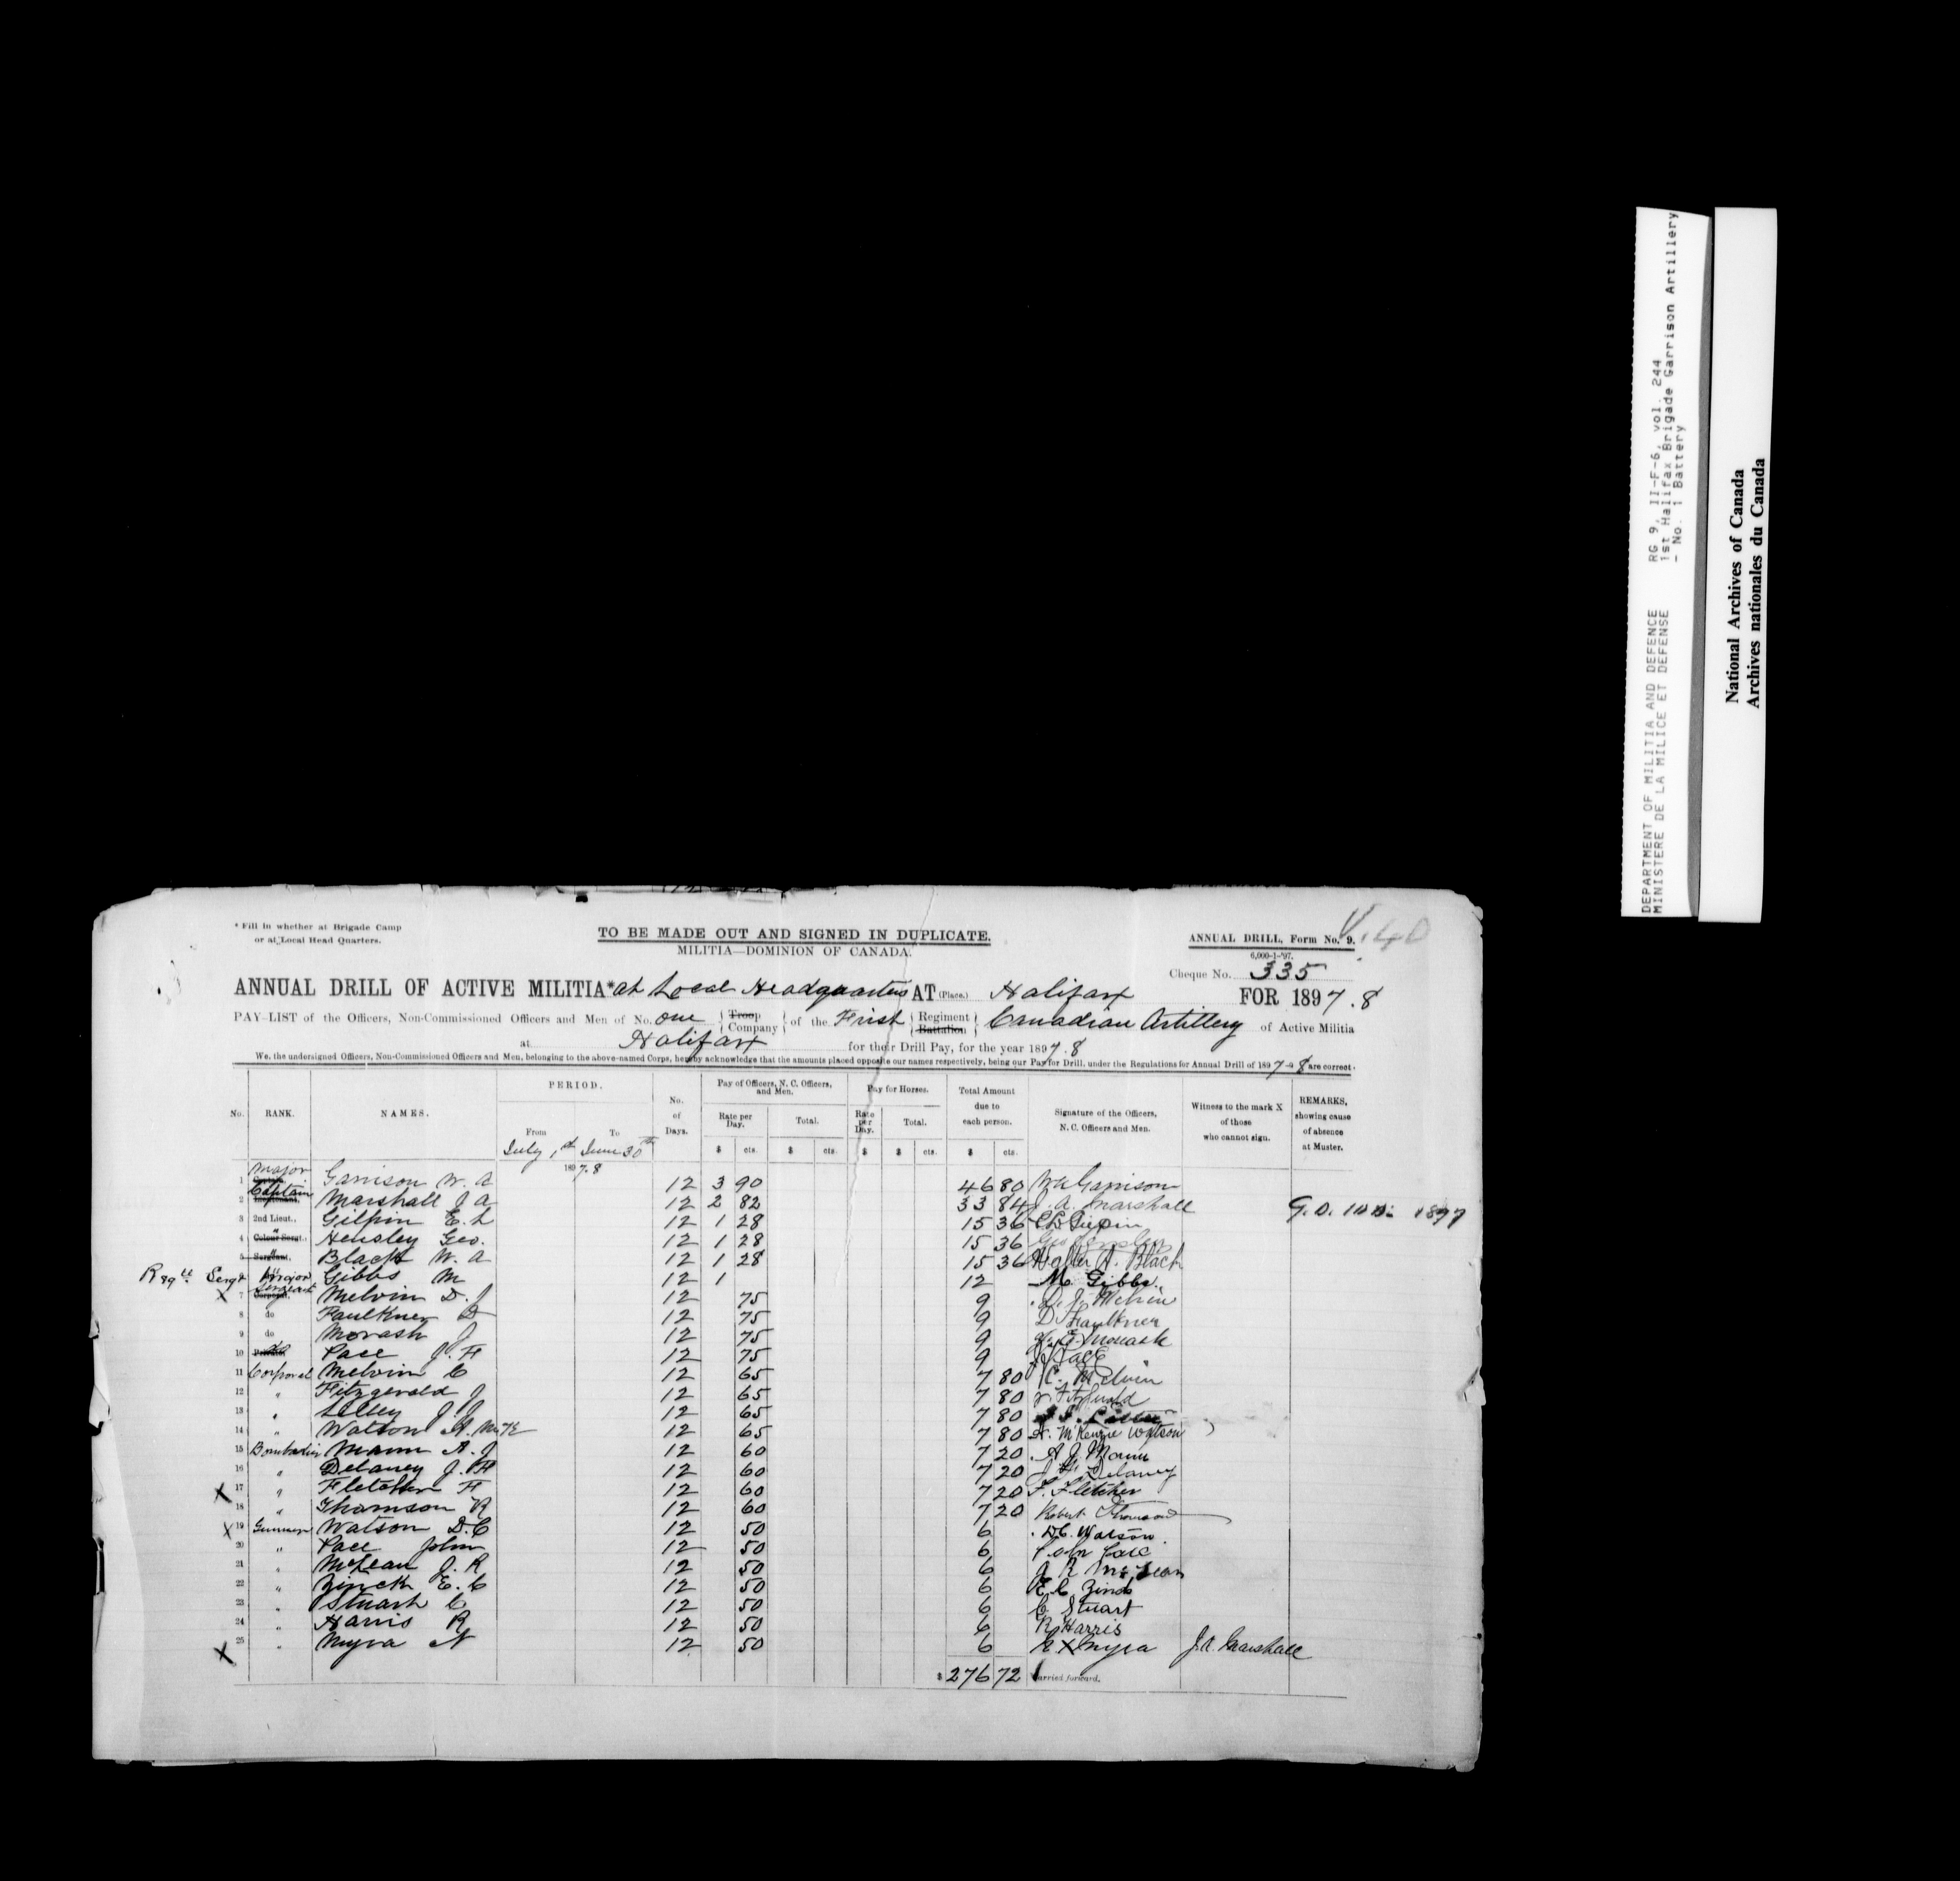 * Fill in whether at Brigade Camp
or at Local Head Quarters.
TO BE MADE OUT AND SIGNED IN DUPLICATE.
MILITIA—DOMINION OF CANADA.
ANNUAL DRILL, Form No. 9.
V.40
6,000-1-'97.
Cheque No. 335
ANNUAL DRILL OF ACTIVE MILITIA* at Local Headquarters AT (Place.) Halifax FOR 1897.8
PAY-LIST of the Officers, Non-Commissioned Officers and Men of No. one Troop Company of the First Regiment Battalion Canadian Artillery of Active Militia
at Halifax for their Drill Pay, for the year 1897.8
We, the undersigned Officers, Non-Commissioned Officers and Men, belonging to the above-named Corps, hereby acknowledge that the amounts placed opposite our names respectively, being our Pay for Drill, under the Regulations for Annual Drill of 1897-8 are correct.
No. RANK. NAMES. PERIOD. From To No. of Days. Pay of Officers, N. C. Officers, and Men. Rate per Day. Total. Pay for Horses. Rate per Day. Total. Total Amount due to each person. Signature of the Officers, N. C. Officers and Men. Witness to the mark X of those who cannot sign. REMARKS, showing cause of absence at Muster.
July 1st June 30th
$ cts. $ cts. $ $ cts. $ cts.
1897.8
1 Major Garrison W. A 12 3 90 46 80 WA Garrison
2 Captain Lieutenant, Marshall J A 12 2 82 33 84 J. A. Marshall G.O. 1897
3 2nd Lieut., Gilpin E. L 12 1 28 15 36 E L Gilpin
4 " Colour Sergt., Hensley Geo. 12 1 28 15 36 Geo Hensley
5 " Sergeant, Black W. A 12 1 28 15 36 Walter A. Black
Regtl Sergt Major Gibbs M 12 1 12 M. Gibbs.
X 7 Sergeant Corporal. Melvin D. J 12 75 9 D. J. Melvin
8 do Faulkner D 12 75 9 D Faulkner
9 do Morash J 12 75 9 Morash
10 do Private Pace J. F 12 75 9 J F Pace
11 Corporal Melvin C 12 65 7 80 C. Melvin
12 " Fitzgerald J 12 65 7 80 J. Fitzgerald
13 " Lilley J. J 12 65 7 80
14 " Watson H. McK 12 65 7 80 H. McKenzie Watson
15 Bombadier Mann A. J 12 60 7 20 A J Mann
16 " Delaney J. H 12 60 7 20 J. H. Delaney
X 17 " Fletcher F 12 60 7 20 F. Fletcher
18 " Thomson R 12 60 7 20 Robert Thomson
X 19 Gunner Watson D. C 12 50 6 D.C. Watson
20 " Pace John 12 50 6 John Pace
21 " McLean J. R 12 50 6 J R McLean
22 " Zinck E. C 12 50 6 E C Zinck
23 " Stuart C 12 50 6 C Stuart
24 " Harris R 12 50 6 R Harris
X 25 " Myra N 12 50 6 N X Myra J.A. Marshall
$ 276 72 Carried forward.
DEPARTMENT OF MILITIA AND DEFENCE RG 9, II-F-6, vol. 244
MINISTERE DE LA MILICE ET DEFENSE 1st Halifax Brigade Garrison Artillery
- No. 1 Battery
National Archives of Canada
Archives nationales du Canada